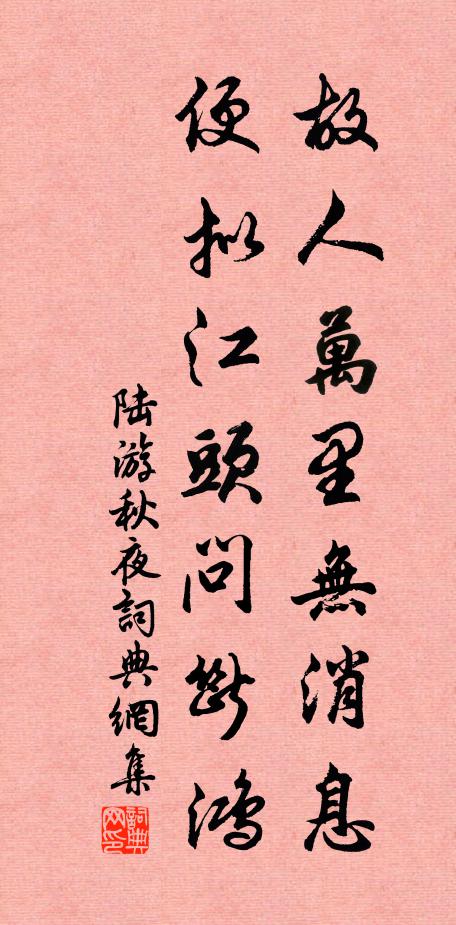 故人萬里無消息
便拟江頭問斷鴻
陆游秋夜詞典網集
詞典网印